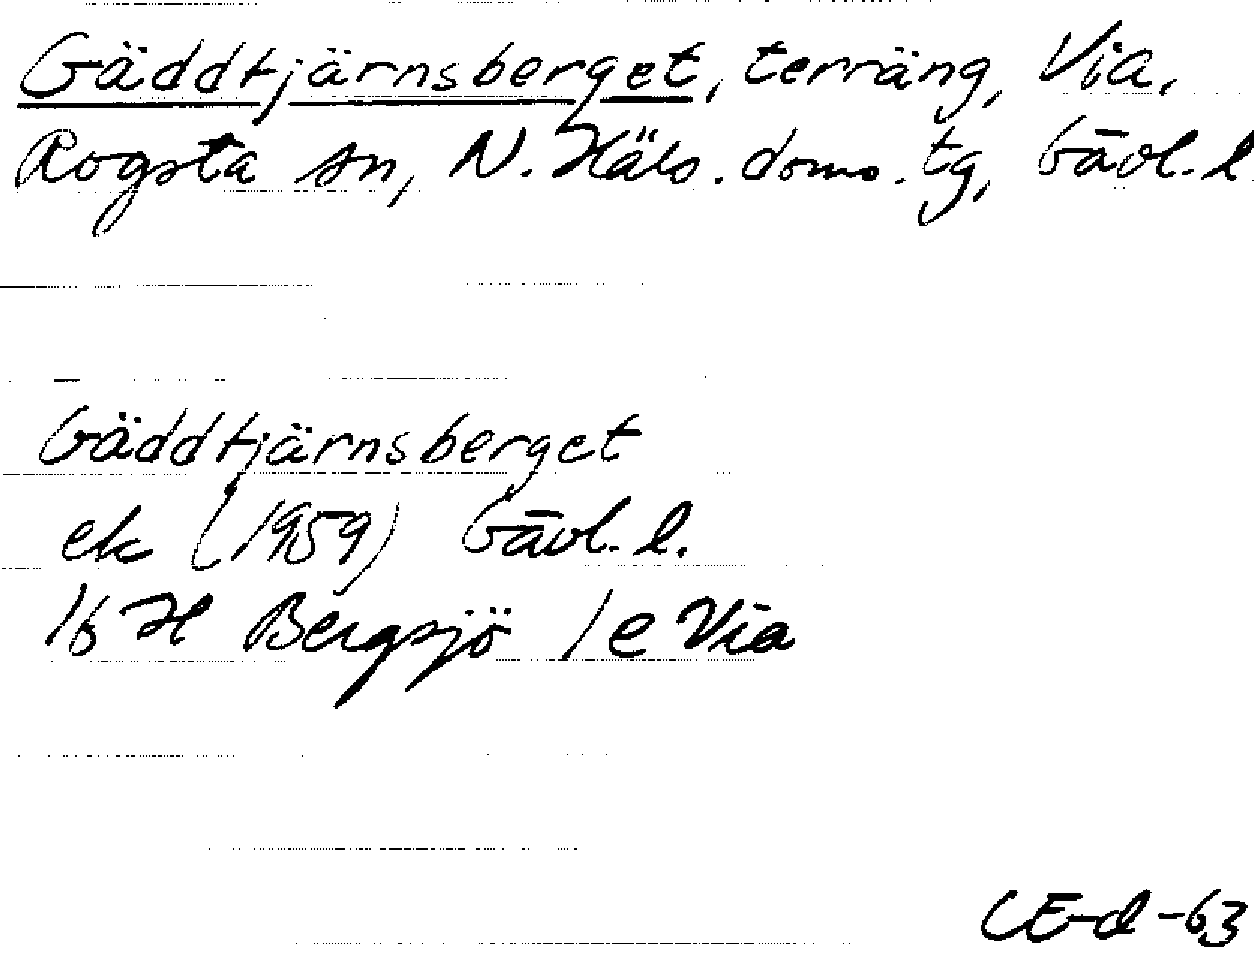 Gäddtjärnsberget, terräng, Via,
Rogsta sn, N. Häls. doms. tg, Gävl. l.
Gäddtjärnsberget
ek (1959) Gävl. l.
16 H Bergsjö 1 e Via
CE-d -63